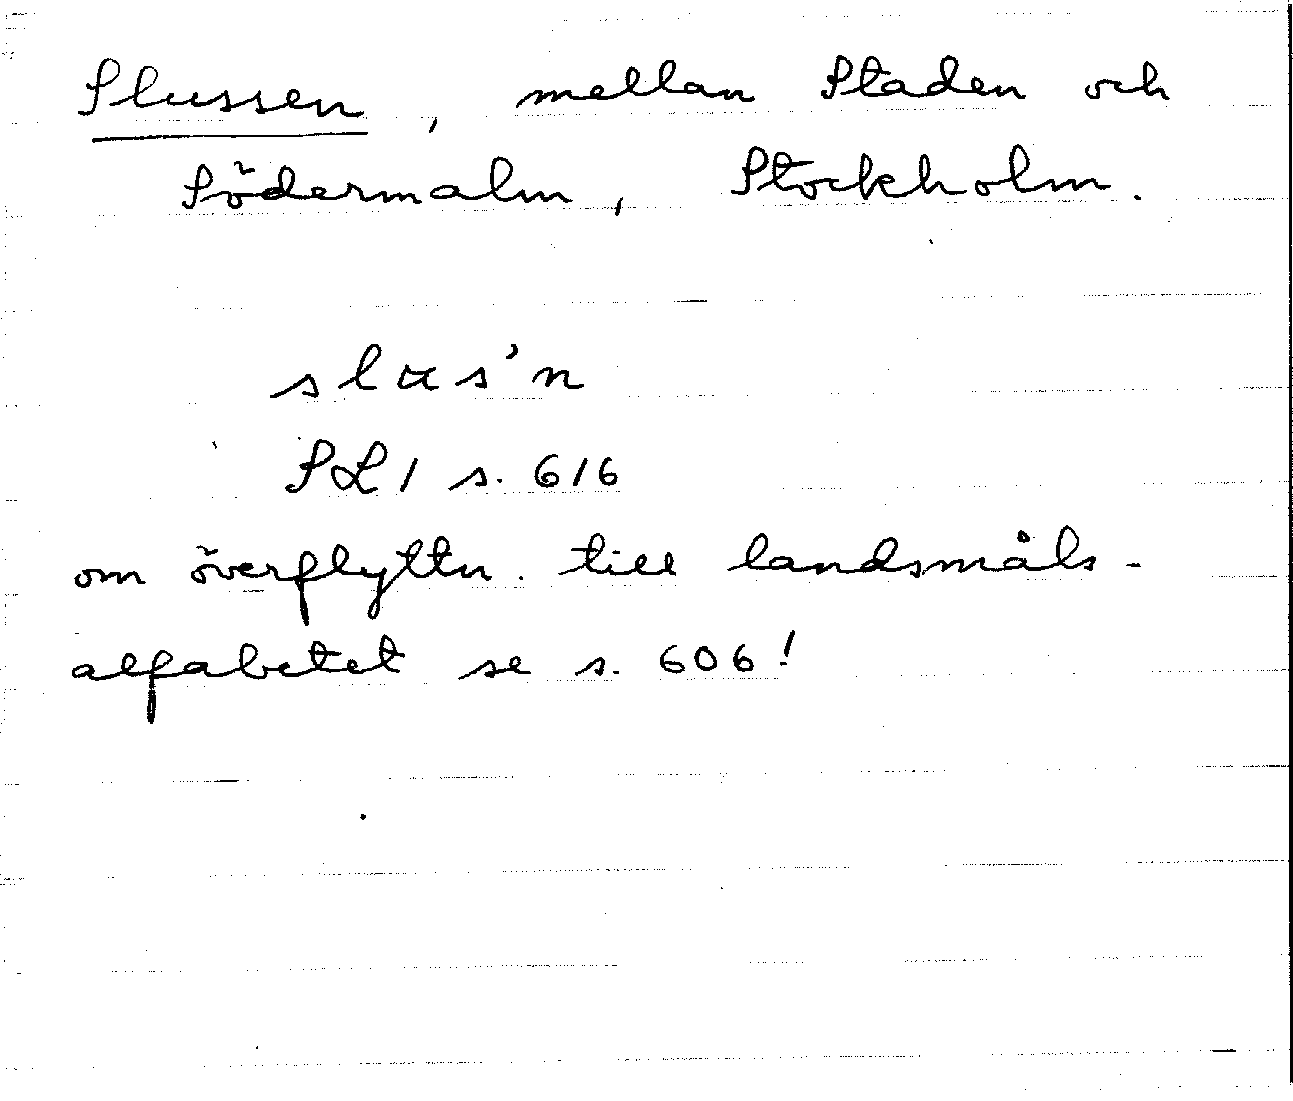 Slussen, mellan Staden och
Södermalm, Stockholm.
slɯs'n
SL 1 s. 616
om överflyttn. till landsmåls-
alfabetet se s. 606!